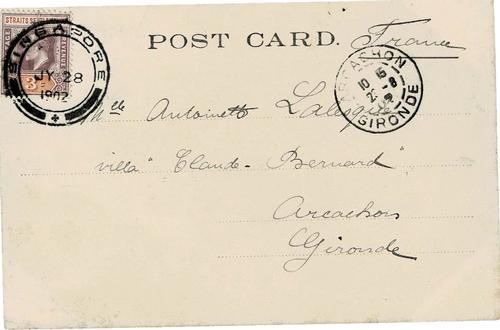 STRAITS SETTLEMENTS
POSTAGE
REVENUE
SINGAPORE
JY 28
1902
POST CARD.
France
ARCACHON
GIRONDE
Mlle Antoinette
villa "Claude-Bernard"
Arcachon
Gironde